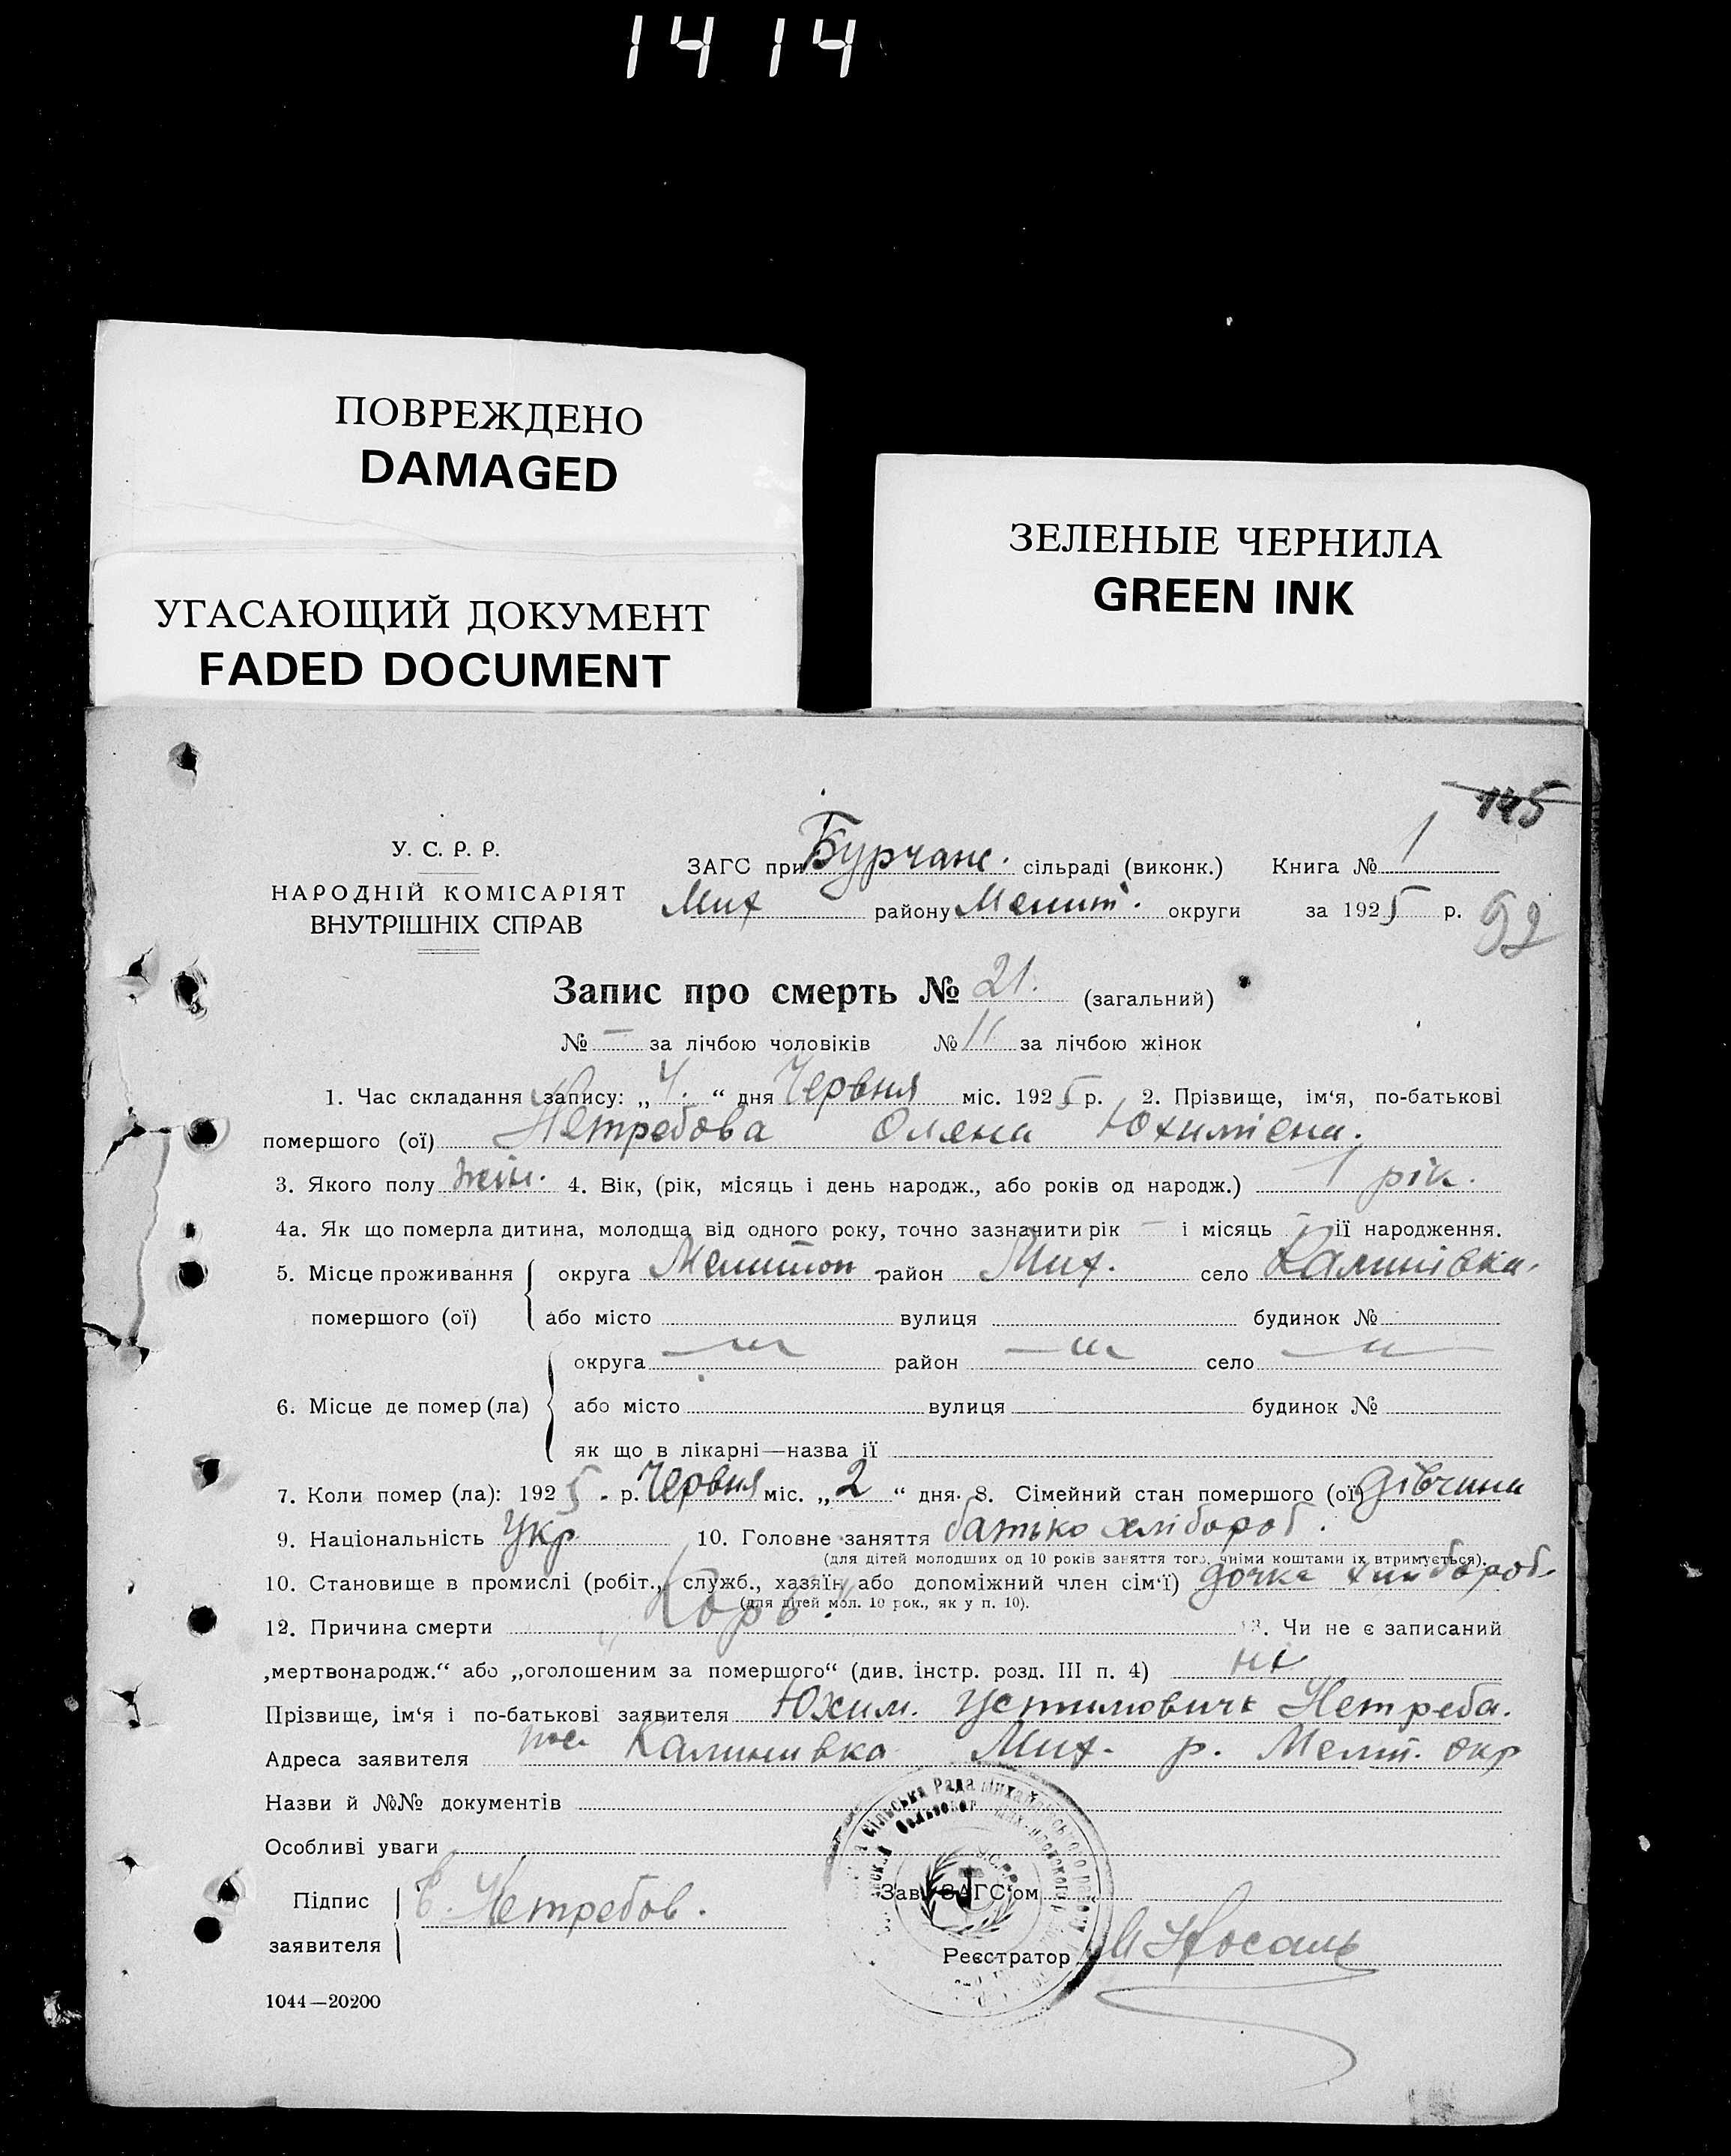 1414
ПОВРЕЖДЕНО
DAMAGED
УГАСАЮЩИЙ ДОКУМЕНТ
FADED DOCUMENT
ЗЕЛЕНЫЕ ЧЕРНИЛА
GREEN INK
145
У. С. Р. Р.
НАРОДНІЙ КОМІСАРІЯТ
ВНУТРІШНІХ СПРАВ
ЗАГС при Бурчанс. сільраді (виконк.) Книга № 1
Мих району Мелит. округи за 1925 р.
92
Запис про смерть № 21. (загальний)
№ — за лічбою чоловіків № 11 за лічбою жінок
1. Час складання запису: „4.“ дня Червня міс. 1925 р. 2. Прізвище, ім‘я, по-батькові
помершого (ої) Нетребова Олена Юхимівна.
3. Якого полу жін. 4. Вік, (рік, місяць і день народж., або років од народж.) 1 рік.
4а. Як що померла дитина, молодща від одного року, точно зазначити рік — і місяць — її народження.
5. Місце проживання помершого (ої) округа Мелитоп район Мих. село Калинівка.
або місто вулиця будинок №
6. Місце де помер (ла) округа —„— район —„— село —„—
або місто вулиця будинок №
як що в лікарні—назва її
7. Коли помер (ла): 1925 р. Червня міс. „2“ дня. 8. Сімейний стан помершого (ої) дівчина
9. Національність Укр 10. Головне заняття батько хлібороб.
(для дітей молодших од 10 років заняття того, чиїми коштами їх втримується).
10. Становище в промислі (робіт., служб., хазяїн або допоміжний член сім‘ї) дочка хлибороб.
(для дітей мол. 10 рок., як у п. 10).
12. Причина смерти „Корь“. 13. Чи не є записаний
„мертвонародж.“ або „оголошеним за помершого“ (див. інстр. розд. III п. 4) ні
Прізвище, ім‘я і по-батькові заявителя Юхим. Устимович Нетреба.
Адреса заявителя пос Калинивка Мих. р. Мелит. окр
Назви й №№ документів
Особливі уваги
Підпис заявителя Е. Нетребов.
Зав. ЗАГС‘ом
Реєстратор Носаль
сільська Рада Михайлівського району
У.С.Р.Р.
1044—20200